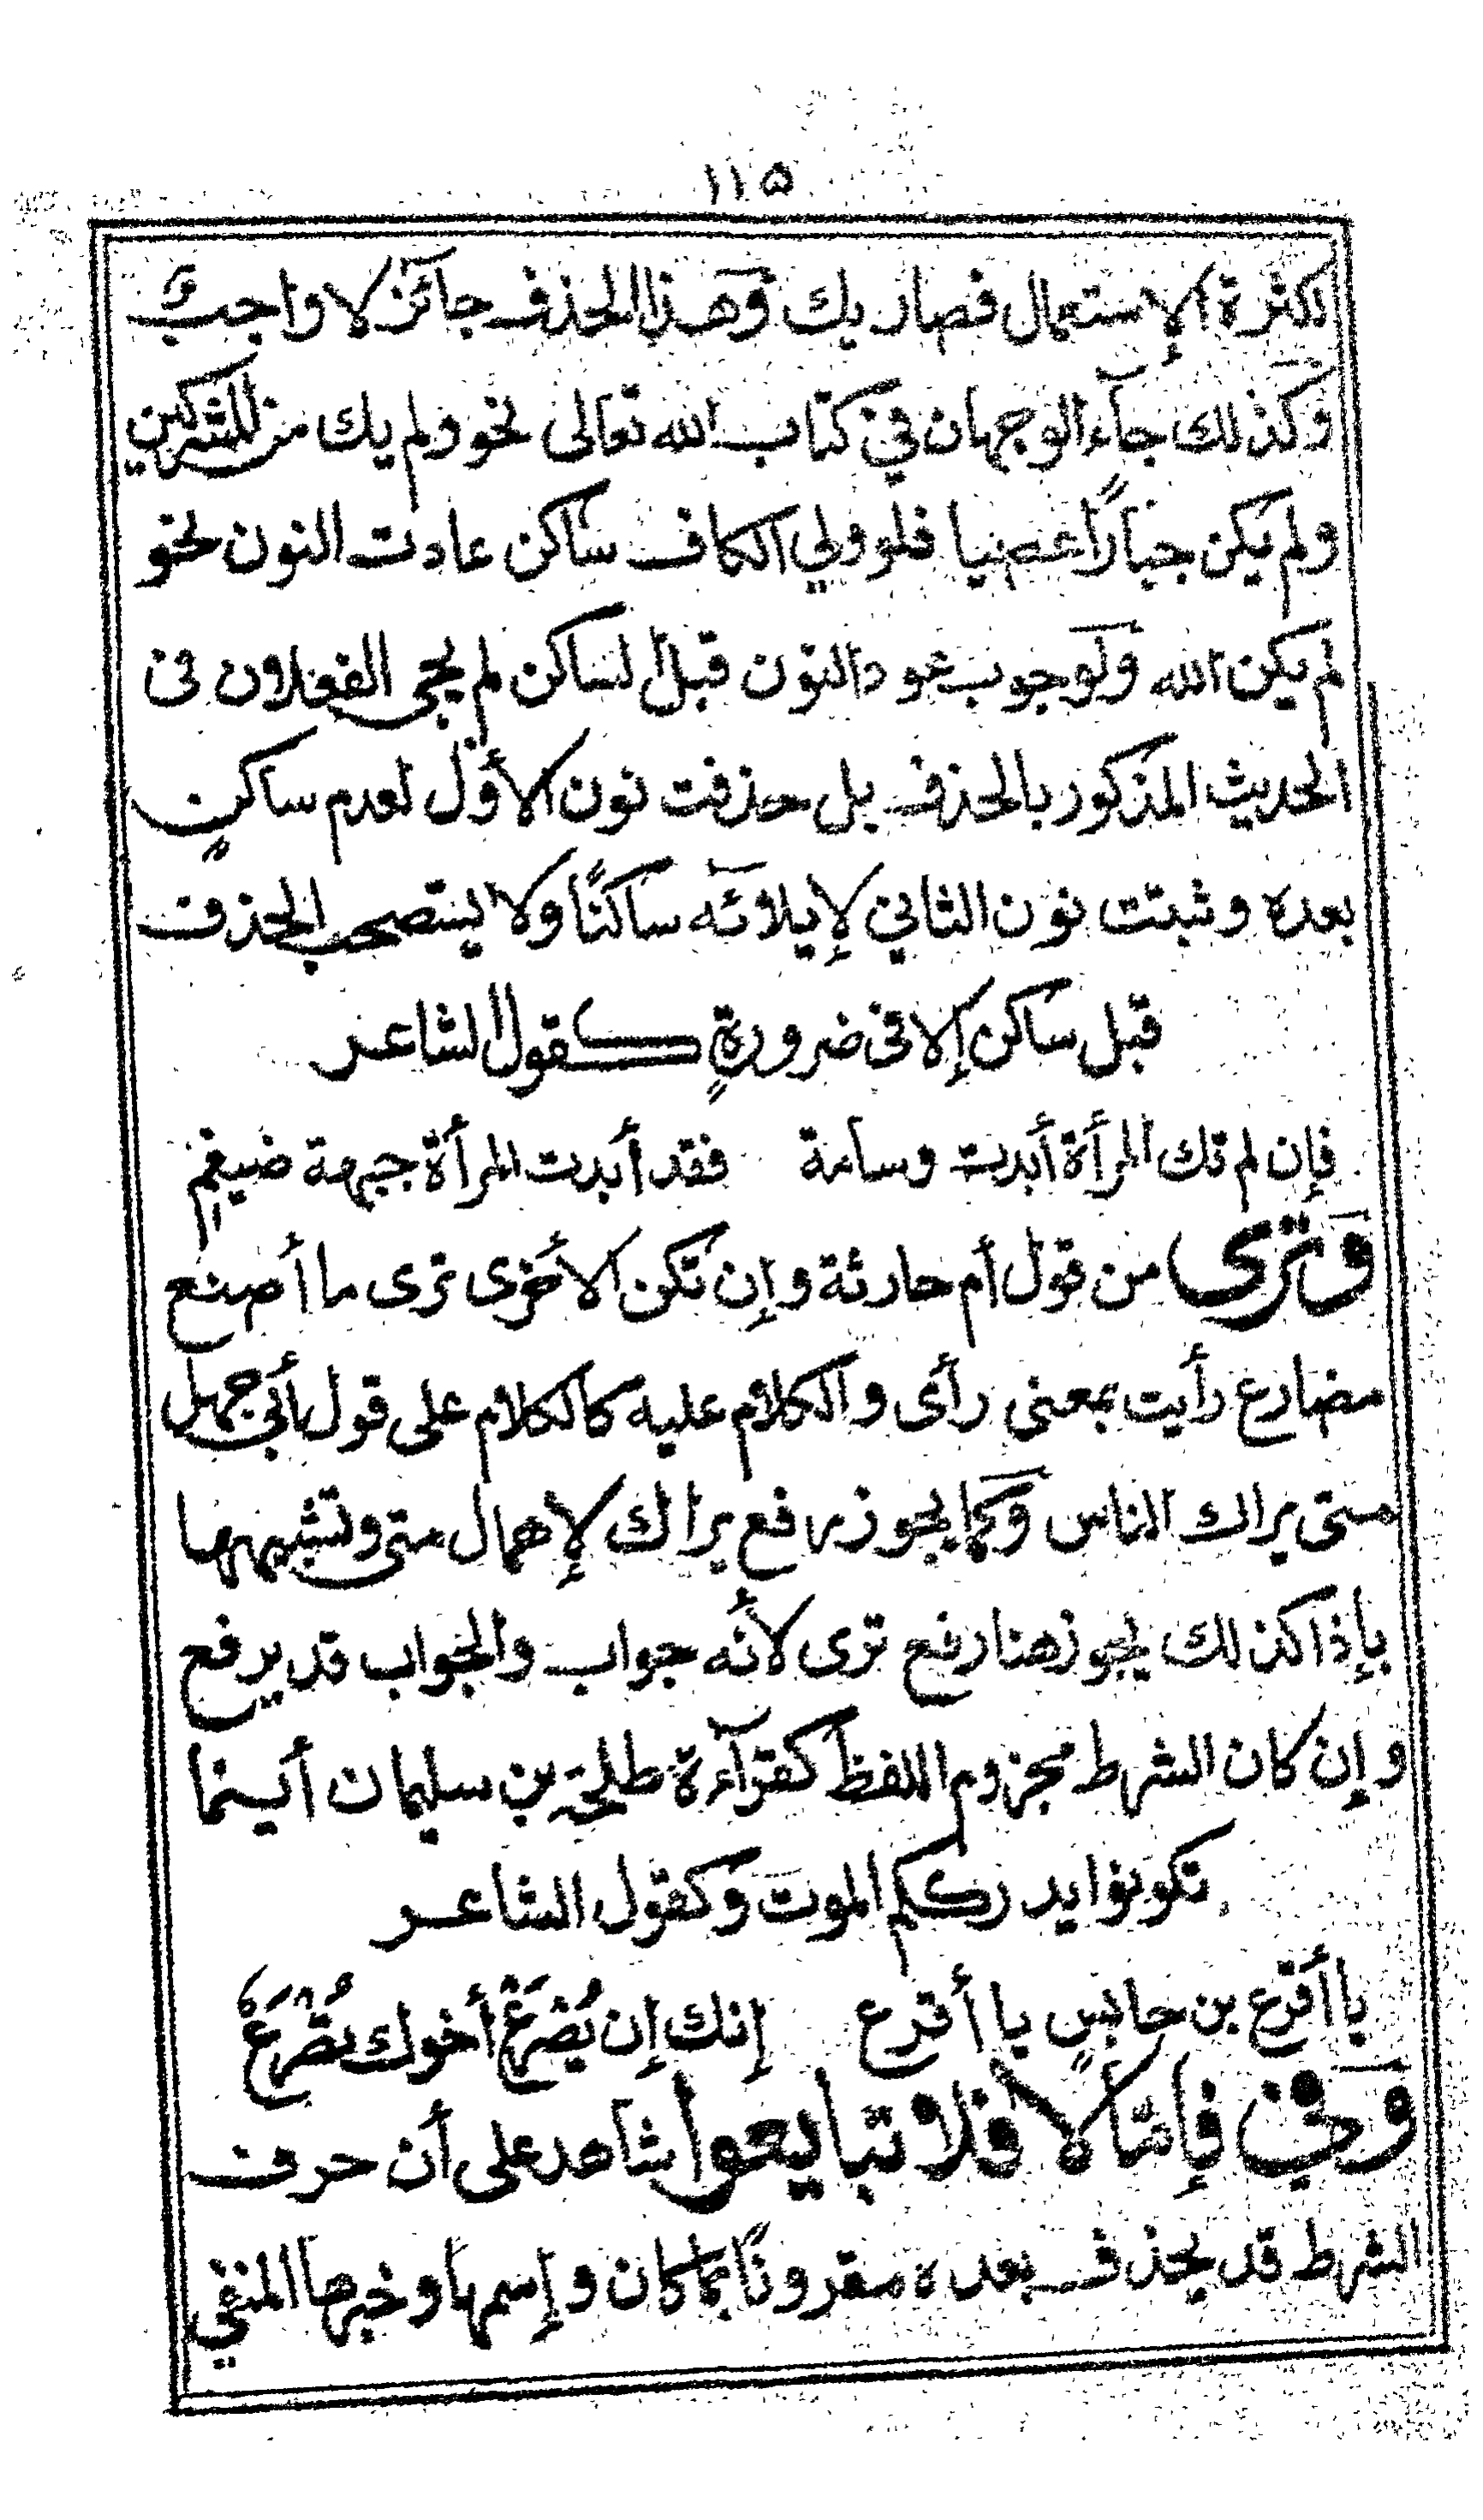 ١١٥
لكثرة الإستعمال فصار يك وَهذا الحذف جائز لا واجبٌ
وَكذلك جآء الوجهان في كتاب الله تعالى نحو ولم يك من المشركين
ولم يكن جبارًا عصيا فلو ولي الكاف ساكن عادت النون نحو
لم يكن الله وَلوجوب عود النون قبل الساكن لم يجى الفعلان فى
الحديث المذكور بالحذف بل حذفت نون الأول لعدم ساكنٍ
بعده وثبتت نون الثاني لإيلائه ساكنًا ولا يستصحب الحذف
قبل ساكن إلا فى ضرورةٍ كقول الشاعر
فإن لم تك المرأة أبدت وسامة فقد أبدت المرأة جبهة ضيغمٍ
وَترى من قول أم حارثة وإن تكن الأخرى ترى ما أصنع
مضارع رأيت بمعنى رأى والكلام عليه كالكلام على قول أبي جهل
متى يراك الناس وَكما يجوز رفع يراك لإهمال متى وتشبيهها
بإذا كذلك يجوز هنا رفع ترى لأنه جواب والجواب قد يرفع
وإن كان الشرط مجزوم اللفظ كقرآءة طلحة بن سليمان أينما
تكونوا يدرككم الموت وكقول الشاعر
يا أقرع بن حابسٍ يا أقرع إنك إن يُصْرَعْ أخوك تُصْرَعُ
وَفي فإمّا لا فلا تبايعوا شاهد على أن حرف
الشرط قد يحذف بعده مقرونًا بما كان وإسمها وخبرها المنفي